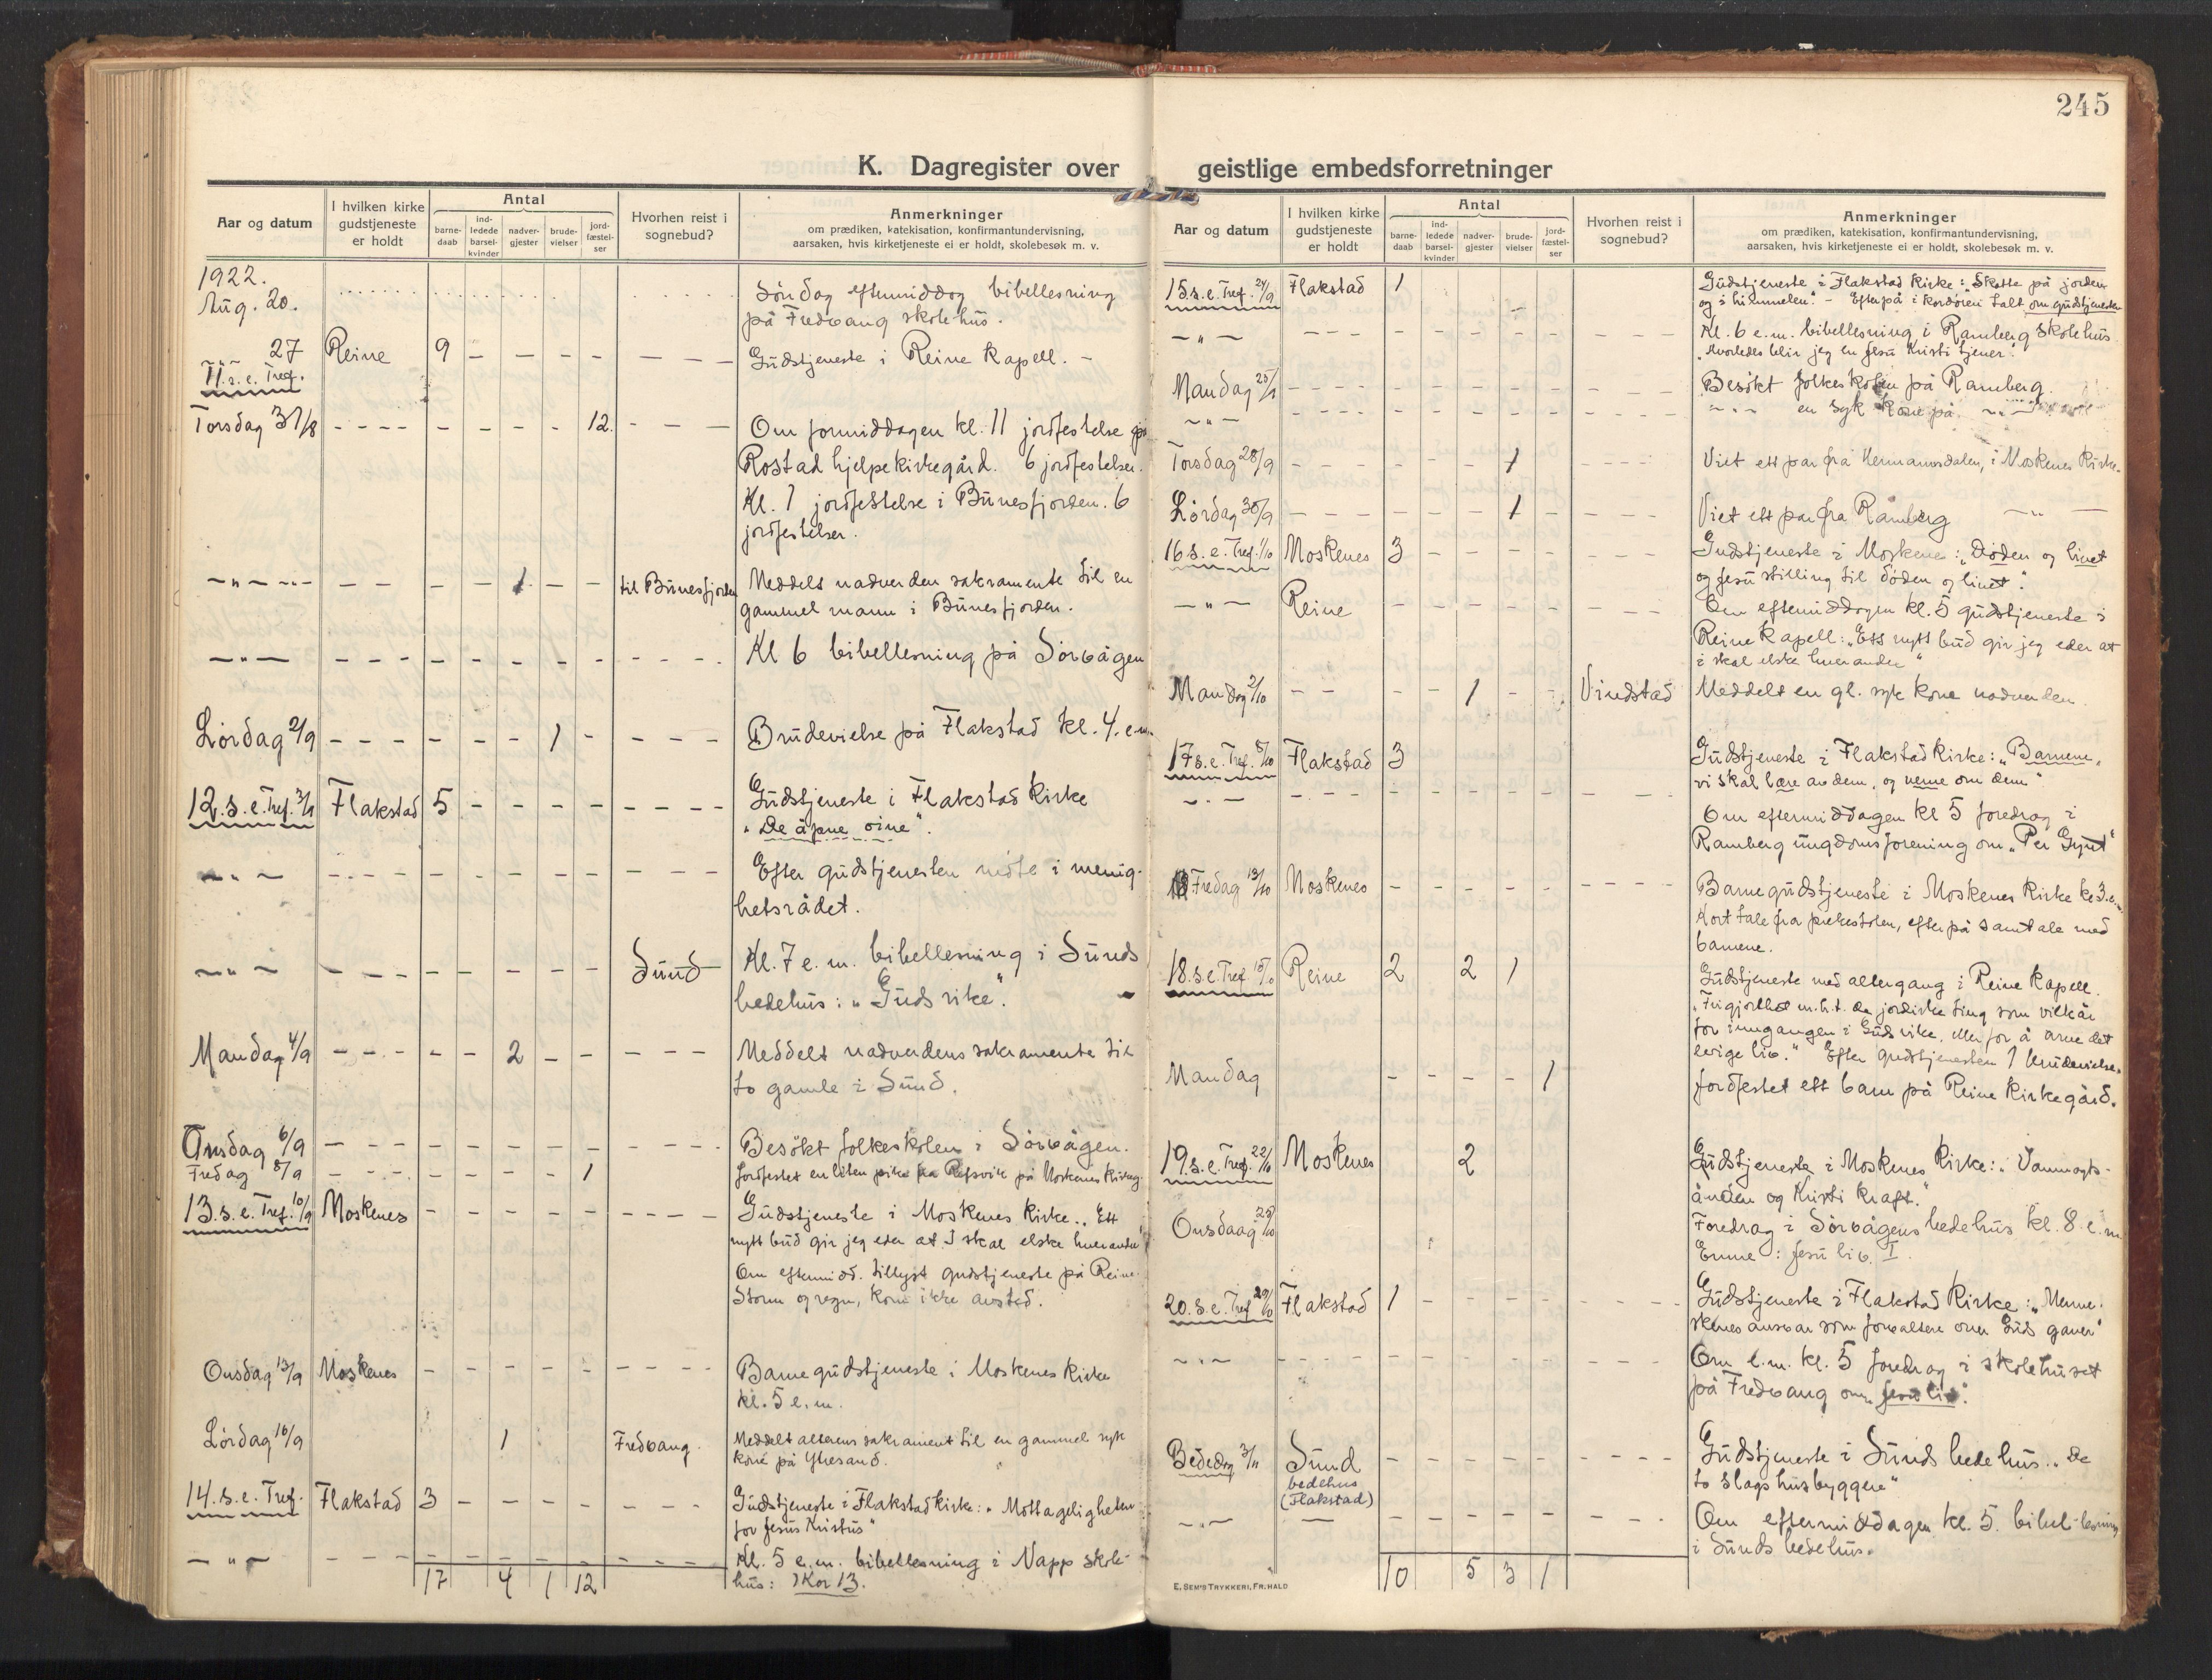 245
K. Dagregister over geistlige embedsforretninger
Aar og datum
I hvilken kirke gudstjeneste er holdt
Antal
barne-daab
ind-ledede barsel-kvinder
nadver-gjester
brude-vielser
jord-fæstel-ser
Hvorhen reist i sognebud?
Anmerkninger
om prædiken, katekisation, konfirmantundervisning,
aarsaken, hvis kirketjeneste ei er holdt, skolebesøk m. v.
1922.
Aug. 20. Söndag eftermiddag bibellesning
på Fredvang skolehus.
-"- 27 Reine 9 - - - - - - - Gudstjeneste i Reine Kapell. -
11. s. e. Tref.
Torsdag 31/8 - - - - - - - - 12. - - - Om formiddagen kl. 11 jordfestelse på
Rostad hjelpekirkegård. 6 jordfestelser.
Kl. 1 jordfestelse i Bunesfjorden. 6
jordfestelser.
-"- - - - - 1 - - til Bunesfjorden Meddelt nadverdens sakramente til en
gammel mann i Bunesfjorden.
-"- - - - - - - - - - - - Kl 6 bibellesning på Sörvågen
Lördag 2/9 - - - - - - - 1 - - - - Brudevielse på Flakstad kl. 4. e.m.
12. s. e. Tref. 3/9 Flakstad 5 - - - - - - - - Gudstjeneste i Flakstad Kirke
"De åpne öine".
-"- - - - - - - - - - - Efter gudstjenesten möte i menig-
hetsrådet.
-"- - - - - - - - - Sund Kl. 7 e. m. bibellesning i Sunds
bedehus: "Guds rike".
Mandag 4/9 - - - - - 2 - - - - - Meddelt nadverdens sakramente til
to gamle i Sund.
Onsdag 6/9 - - - - - - - - - - - Besökt folkeskolen i Sörvågen.
Fredag 8/9 - - - - - - - 1 Jordfestet en liten pike fra Refsvik på Moskenes Kirkeg.
13. s. e. Tref. 10/9 Moskenes - - - - - - - - - Gudstjeneste i Moskenes Kirke. "Ett
nytt bud gir jeg eder at I skal elske hverandre"
Om eftermidd. tillyst gudstjeneste på Reine.
Storm og regn, kom ikke avsted.
Onsdag 13/9 Moskenes - - - - - - - - - Barnegudstjeneste i Moskenes Kirke
kl. 5 e. m.
Lördag 16/9 1 Fredvang. Meddelt alterens sakrament til en gammel syk
kone på Ytresand.
14. s. e. Tref. Flakstad 3 - - - - - - - Gudstjeneste i Flakstad kirke: "Mottageligheten
for Jesus Kristus"
-"- - - - - - - - - - - - Kl. 5 e. m. bibellesning i Napp skole-
hus: 1 Kor 13.
17 4 1 12
Aar og datum
I hvilken kirke gudstjeneste er holdt
Antal
barne-daab
ind-ledede barsel-kvinder
nadver-gjester
brude-vielser
jord-fæstel-ser
Hvorhen reist i sognebud?
Anmerkninger
om prædiken, katekisation, konfirmantundervisning,
aarsaken, hvis kirketjeneste ei er holdt, skolebesøk m. v.
15. s. e. Tref. 24/9 Flakstad 1 Gudstjeneste i Flakstad Kirke: "Skatte på jorden
og i himmelen". - Efterpå i kordören talt om gudstjenesten
-"- - - - - - - - - - - - Kl. 6 e. m. bibellesning i Ramberg skolehus
"Hvorledes blir jeg en Jesu Kristi tjener".
Mandag 25/9 - - - - - - - - - - Besökt folkeskolen på Ramberg.
-"- - - - - - - - - - - -"- en syk kone på -"-
Torsdag 28/9 - - - - - - 1 - - - Viet ett par fra Hermannsdalen, i Moskenes Kirke.
Lördag 30/9 - - - - - - 1 - - - - Viet ett par fra Ramberg -"-
16 s. e. Tref. 1/10 Moskenes 3 - - - - - - - Gudstjeneste i Moskenes: "Döden og livet
og Jesu stilling til döden og livet".
-"- Reine - - - - - - - - Om eftermiddagen kl. 5 gudstjeneste i
Reine Kapell: "Ett nytt bud gir jeg eder at
i skal elske hverandre"
Mandag 2/10 - - - - 1 - - Vindstad Meddelt en gl. syk kone nadverden.
17 s. e. Tref. 8/10 Flakstad 3 Gudstjeneste i Flakstad Kirke: "Barnene,
vi skal lære av dem, og verne om dem"
-"- - - - - - - - - - - Om eftermiddagen kl 5 foredrag i
Ramberg ungdomsforening om "Per Gynt"
Fredag 13/10 Moskenes - - - - - - - - - Barnegudstjeneste i Moskenes Kirke kl 3. e.m.
Kort tale fra prekestolen, efterpå samtale med
barnene.
18. s. e. Tref 15/10 Reine 2 2 1 Gudstjeneste med altergang i Reine Kapell.
"Frigjorthet m. h. t. de jordiske ting som vilkår
for inngangen i Guds rike, eller for å arve det
evige liv." Efter gudstjenesten 1 brudevielse.
Mandag - - - - 1 Jordfestet ett barn på Reine Kirkegård.
19. s. e. Tref. 22/10 Moskenes 2 Gudstjeneste i Moskenes Kirke: "Vanmagts-
ånden og Kristi Kraft."
Onsdaag 25/10 Foredrag i Sörvågens bedehus kl. 8 e. m.
Emne: Jesu liv. I.
20. s. e. Tref 29/10 Flakstad 1 - - - - - - - - Gudstjeneste i Flakstad Kirke: "Menne-
skenes ansvar som forvaltere over Guds gaver"
-"- - - - - - - - - - - Om e. m. kl. 5 foredrag i skolehuset
på Fredvang om "Jesu liv".
Bededag 3/11 Sund - - - - - - - - - Gudstjeneste i Sunds bedehus. "De
bedehus to slags husbyggere"
(Flakstad)
-"- - - - - - - - - - Om eftermiddagen kl. 5. bibel-lesning
i Sunds bedehus.
10 5 3 1
E. SEM'S TRYKKERI, FR.HALD